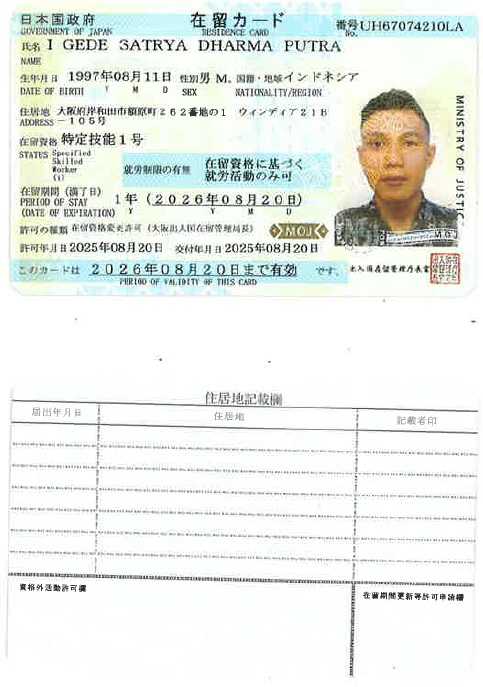 日本国政府 在留カード 番号UH67074210LA
GOVERNMENT OF JAPAN RESIDENCE CARD No.
氏名 I GEDE SATRYA DHARMA PUTRA
NAME
生年月日 1997年08月11日 性別 男 M. 国籍・地域 インドネシア
DATE OF BIRTH Y M D SEX NATIONALITY/REGION
住居地 大阪府岸和田市額原町262番地の1 ウィンディア21B
ADDRESS －105号
在留資格 特定技能1号
STATUS Specified
Skilled
Worker
(i)
就労制限の有無 在留資格に基づく
就労活動のみ可
在留期間（満了日） 1年（2026年08月20日）
PERIOD OF STAY
(DATE OF EXPIRATION) Y Y M D
許可の種類 在留資格変更許可（大阪出入国在留管理局長）
MOJ
許可年月日 2025年08月20日 交付年月日 2025年08月20日
このカードは 2026年08月20日まで有効 です。
PERIOD OF VALIDITY OF THIS CARD
MINISTRY OF JUSTICE
出入国在留管理庁長官
住居地記載欄
届出年月日 住居地 記載者印
資格外活動許可欄 在留期間更新等許可申請欄